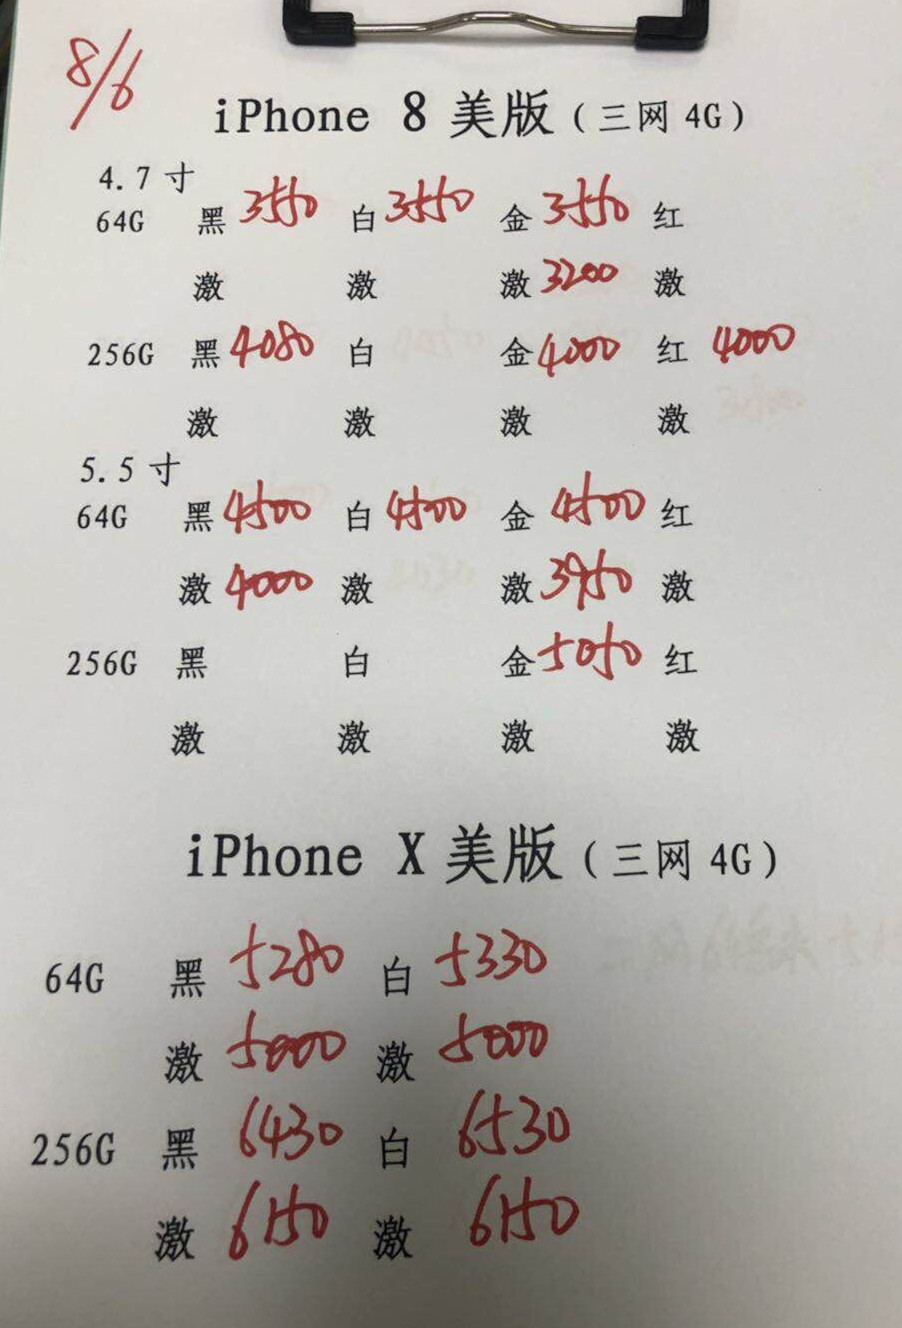 8/6
iPhone 8 美版（三网 4G）
4.7 寸
64G 黑 3550 白 3550 金 3550 红
激 激 激 3200 激
256G 黑 4080 白 金 4000 红 4000
激 激 激 激
5.5 寸
64G 黑 4500 白 4500 金 4500 红
激 4000 激 激 3950 激
256G 黑 白 金 5050 红
激 激 激 激
iPhone X 美版（三网 4G）
64G 黑 5280 白 5330
激 5000 激 5000
256G 黑 6430 白 6530
激 6150 激 6150